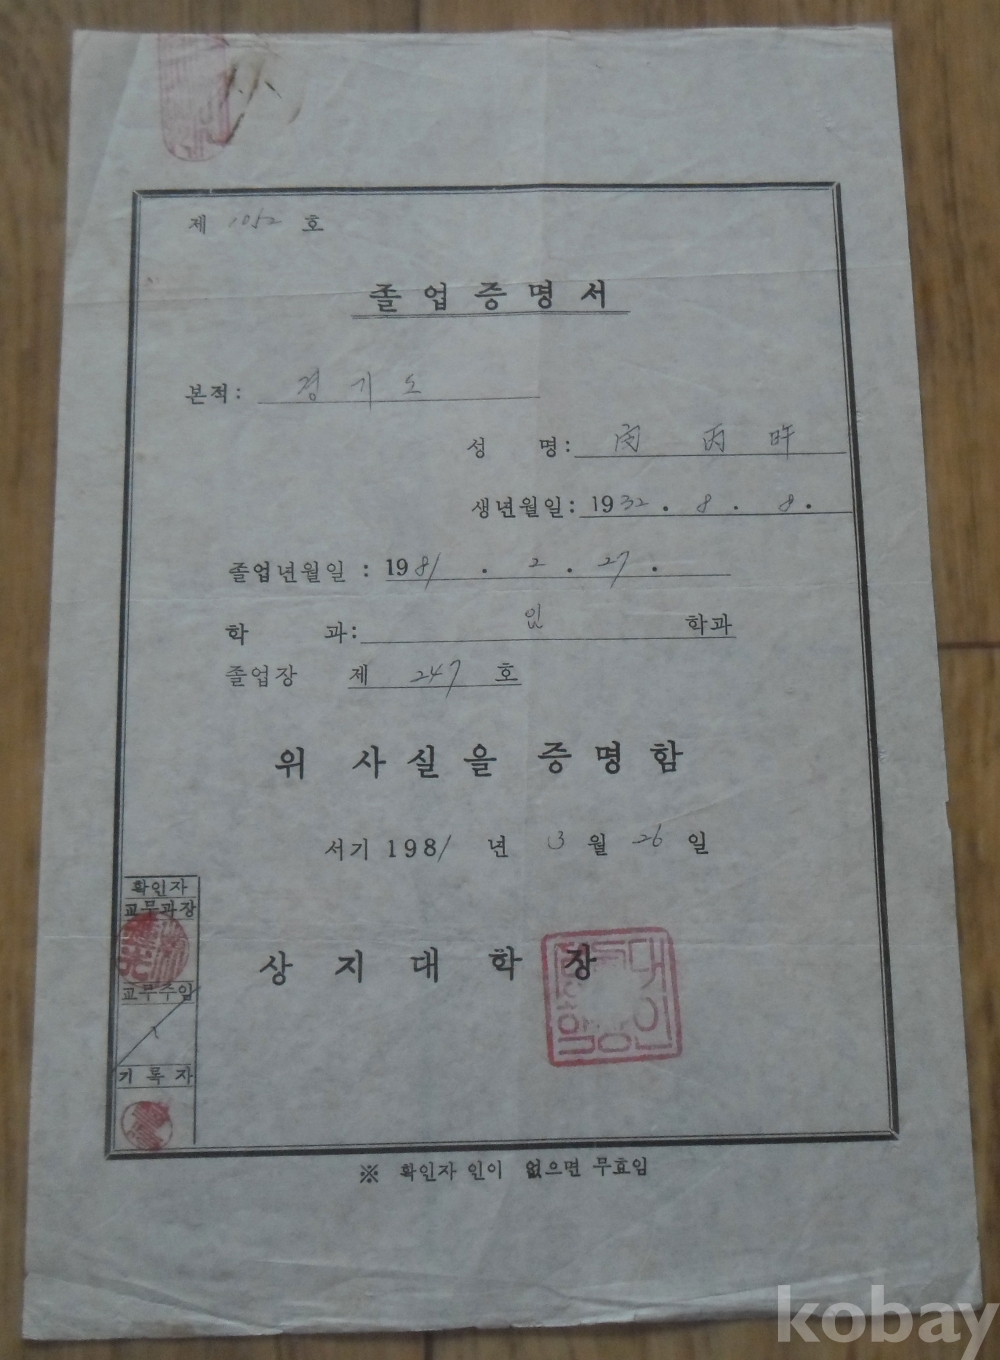 제 1052 호
졸업증명서
본적: 경기도
성 명: 閔 丙 旿
생년월일: 1932. 8. 8.
졸업년월일 : 1981. 2. 27.
학 과: 임 학과
졸업장 제 247 호
위 사실을 증명함
서기 1981 년 3 월 26 일
상지대학장
확인자
교무과장
교무주임
기록자
※ 확인자 인이 없으면 무효임
kobay